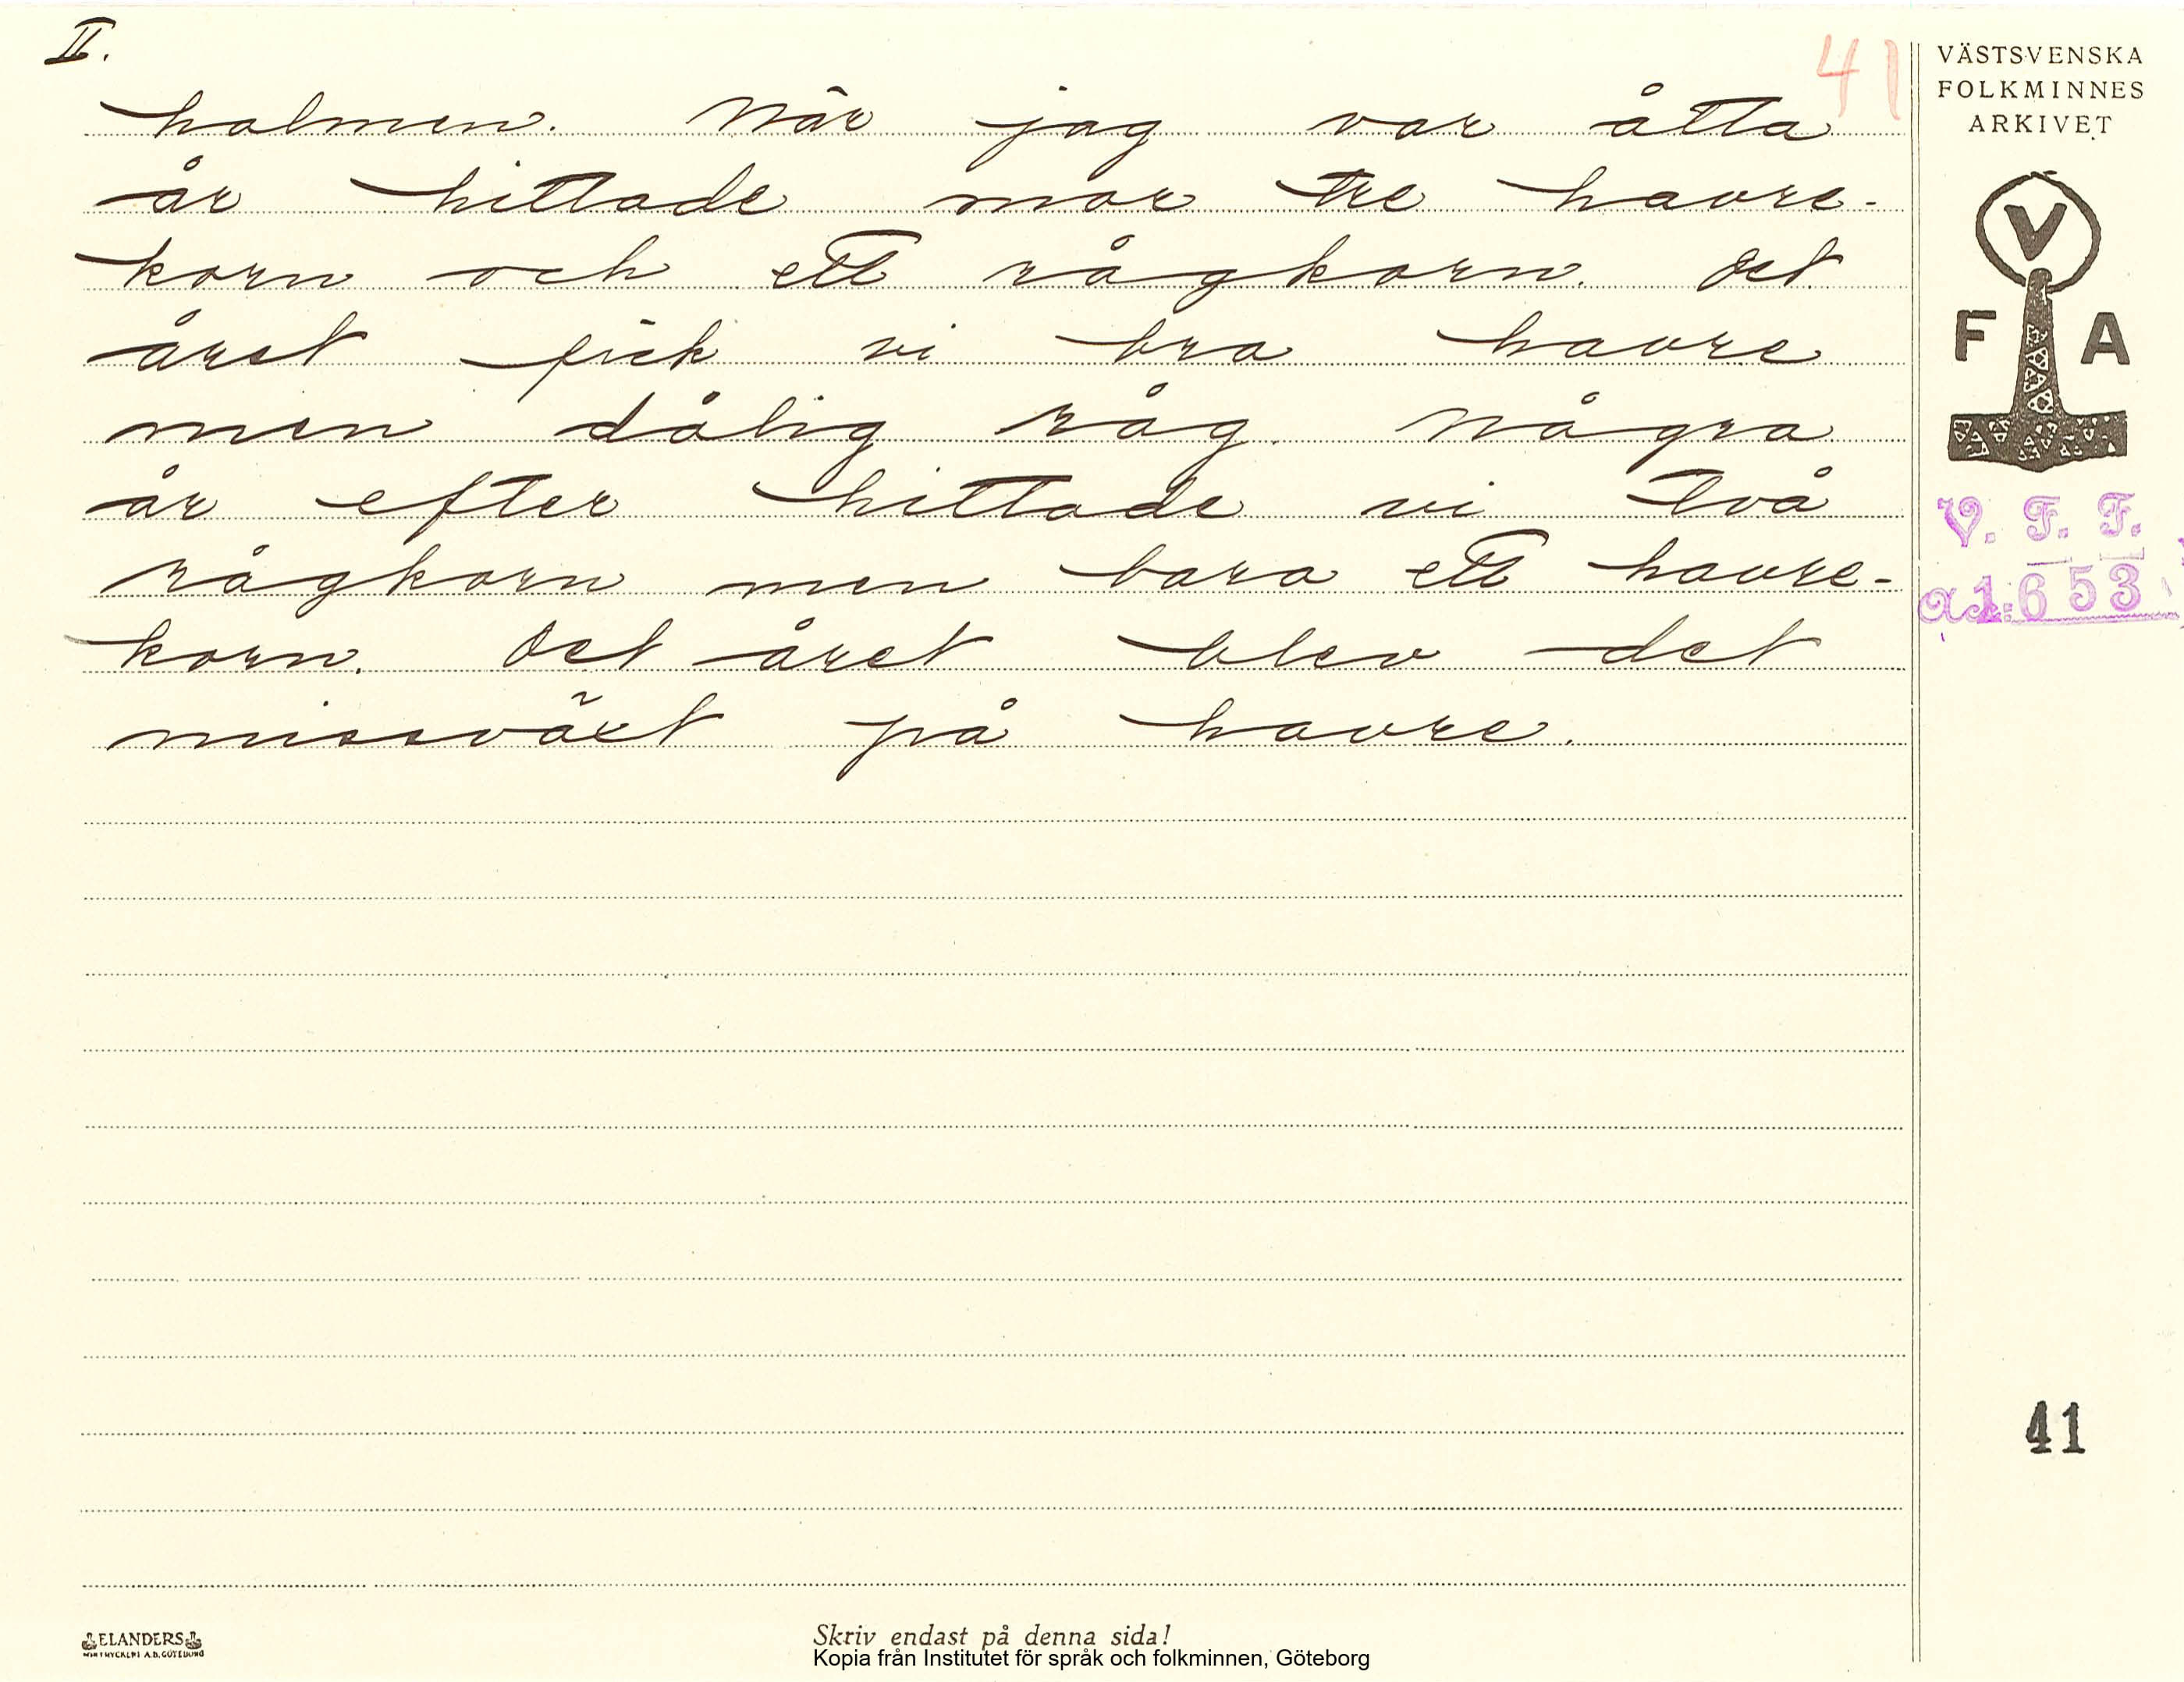 II.
41
halmen. När jag var åtta
år hittade mor tre havre-
korn och ett rågkorn. Det
året fick vi bra havre
men dålig råg. Några
år efter hittade vi två
rågkorn men bara ett havre-
korn. Det året blev det
missväxt på havre.
VÄSTSVENSKA
FOLKMINNES
ARKIVET
V
F A
V. F. F.
1653
41
ELANDERS
Skriv endast på denna sida!
Kopia från Institutet för språk och folkminnen, Göteborg